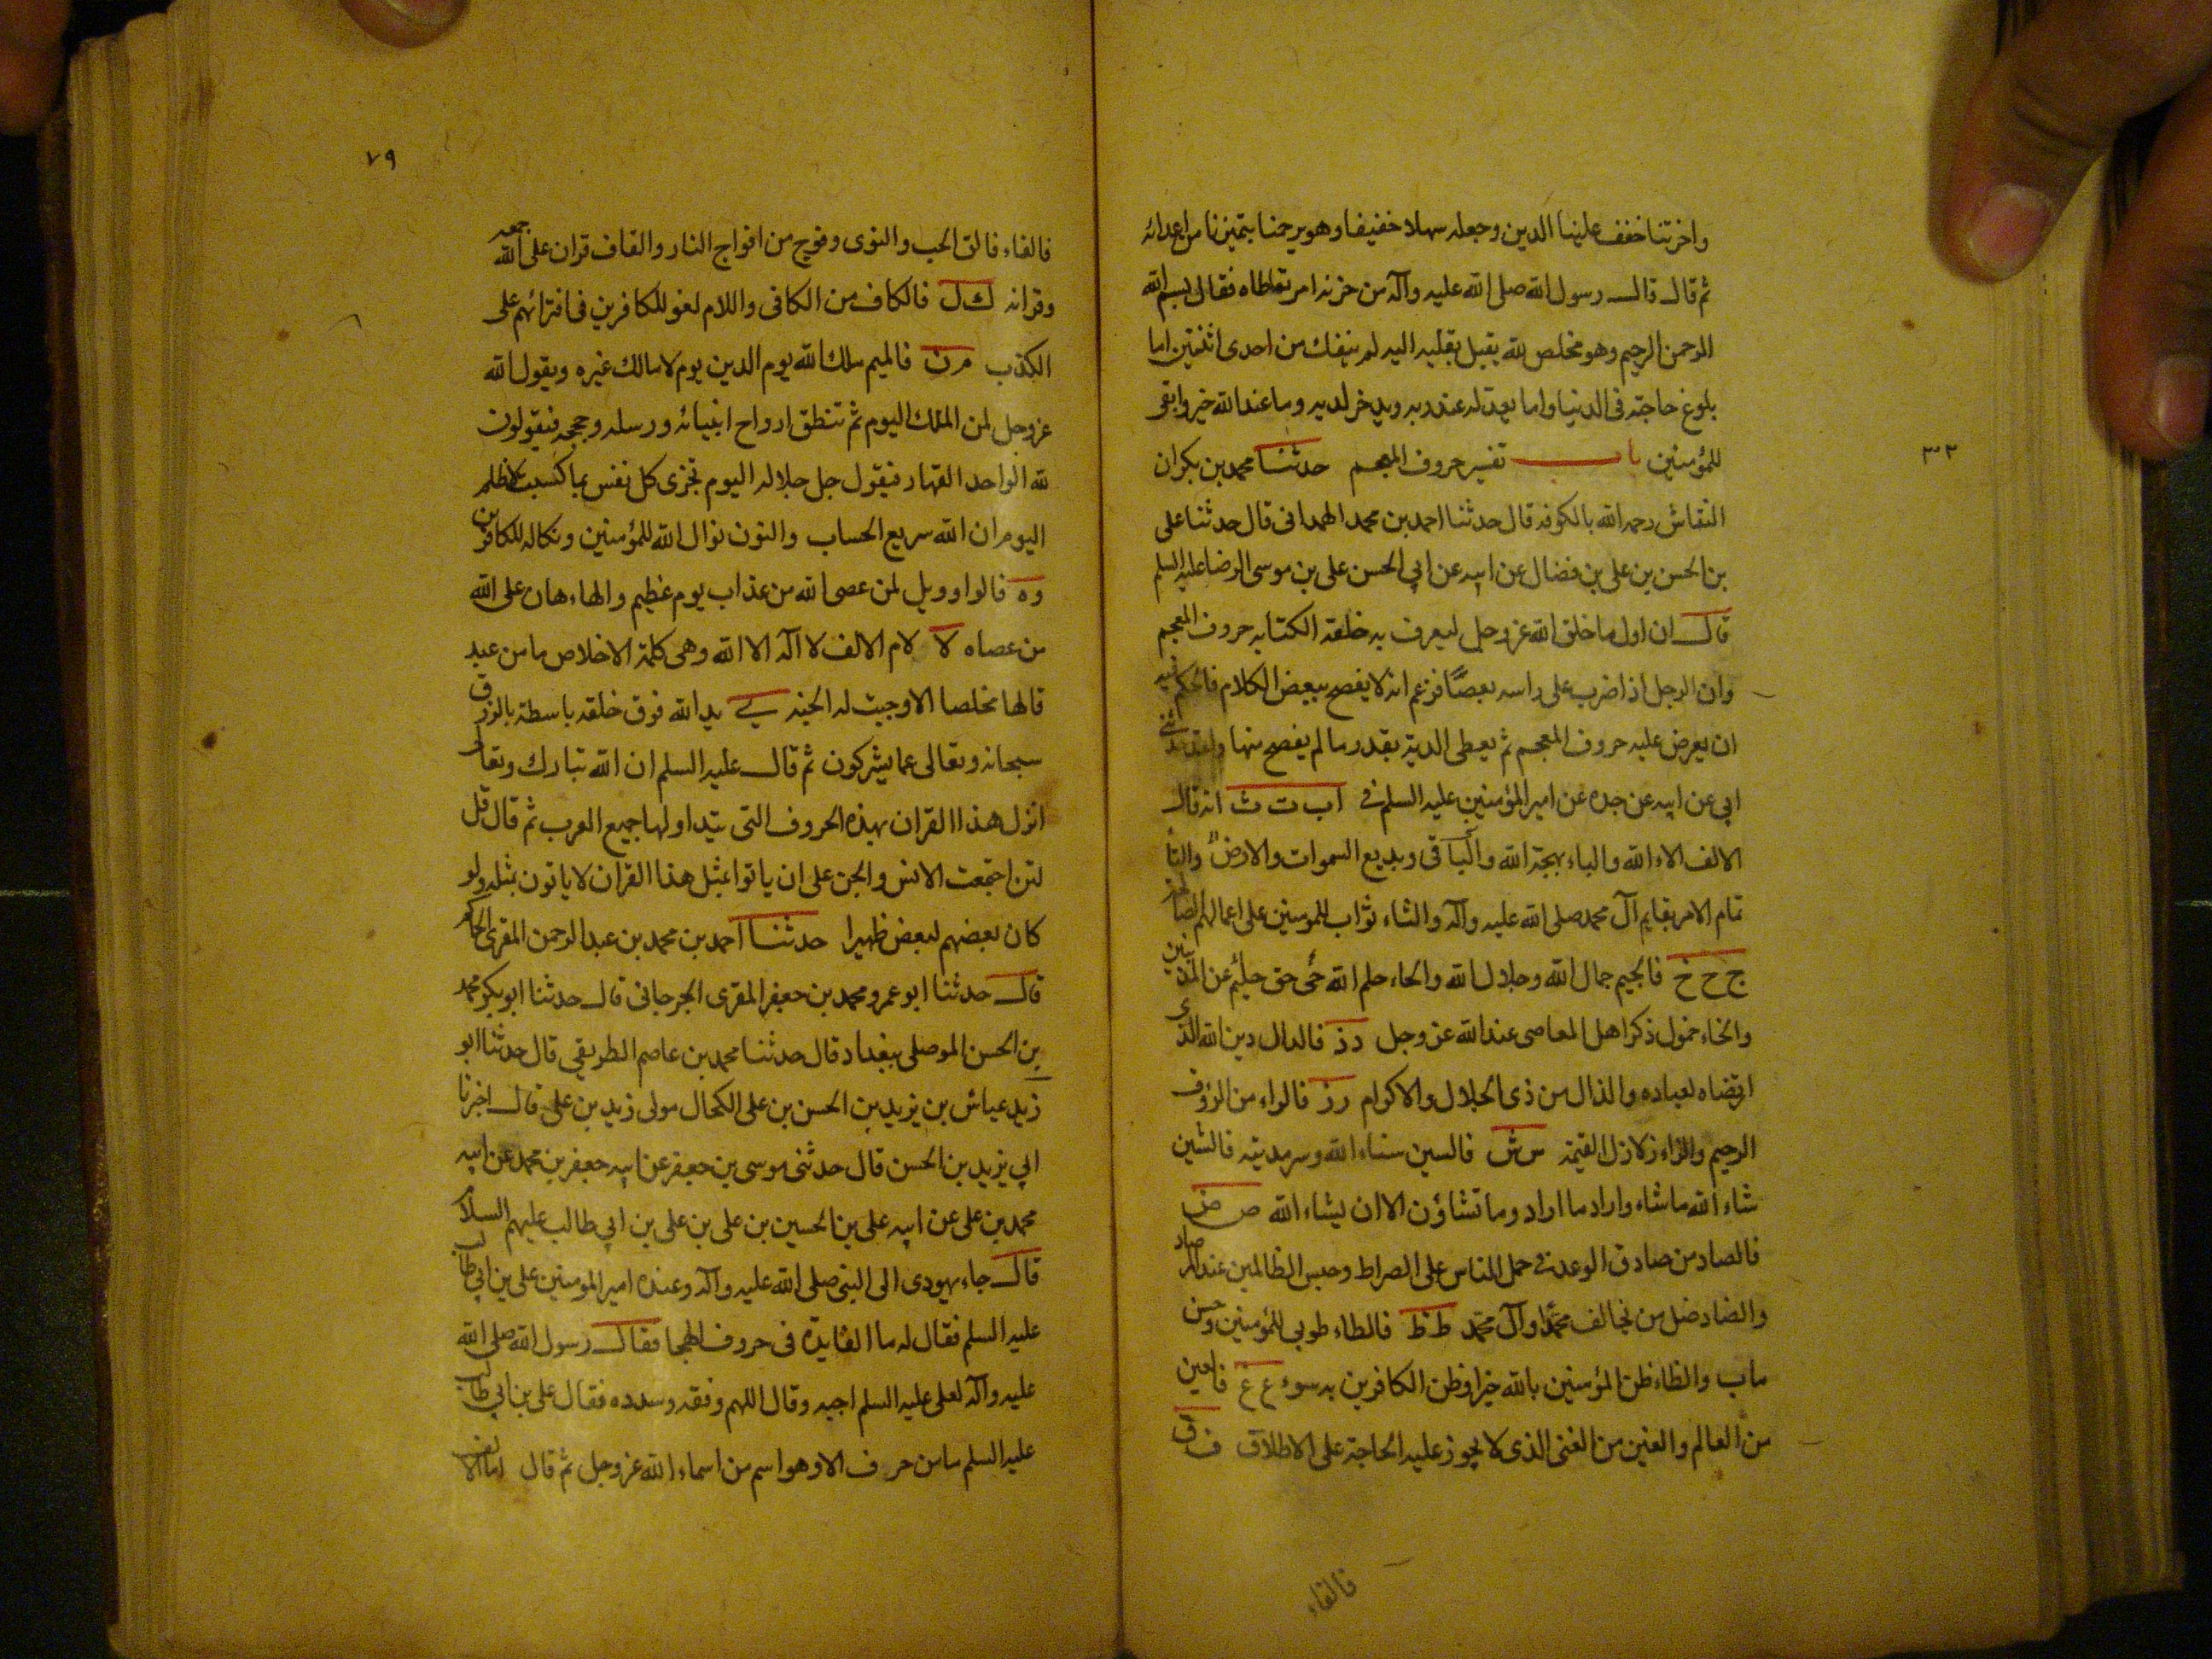 واخرتنا خفف علينا الدين وجعله سهلا خفيفا وهو يرحمنا بتميزنا من اعدائه
ثم قال قال رسول الله صلى الله عليه وآله من حزنه امر تعاطاه فقال بسم الله
الرحمن الرحيم وهو مخلص لله يقبل بقلبه اليه لم ينفك من احدى اثنتين اما
بلوغ حاجته فى الدنيا واما يعد له عند ربه ويدخر لديه وما عند الله خير وابقى
للمؤمنين باب تفسير حروف المعجم حدثنا محمد بن بكران
٣٢
النقاش رحمه الله بالكوفه قال حدثنا احمد بن محمد الهمدانى قال حدثنا على
بن الحسن بن على بن فضال عن ابيه عن ابي الحسن على بن موسى الرضا عليه السلم
قال ان اول ما خلق الله عز وجل ليعرف به خلقه الكتابه حروف المعجم
وان الرجل اذا ضرب على راسه بعصًا فزعم انه لا يفصح ببعض الكلام فالحكم فيه
ان يعرض عليه حروف المعجم ثم يعطى الدية بقدر ما لم يفصح منها ولقد حدثنى
ابى عن ابيه عن جده عن امير المؤمنين عليه السلم فى ا ب ت ث انه قال
الالف الاء الله والباء بهجة الله والباقى وبديع السموات والارض والتاء
تمام الامر بقايم آل محمد صلى الله عليه وآله والثاء ثواب للمومنين على اعمالهم الصالحة
ج ح خ فالجيم جمال الله وجلال الله والحاء حلم الله حى حق حليم عن المذنبين
والخاء خمول ذكر اهل المعاصى عند الله عز وجل د ذ فالدال دين الله الذى
ارتضاه لعباده والذال من ذى الجلال والاكرام ر ز فالراء من الرؤف
الرحيم والزاء زلازل القيمة س ش فالسين سناء الله وسرمديته فالشين
شاء الله ما شاء واراد ما اراد وما تشاؤن الا ان يشاء الله ص ض
فالصاد من صادق الوعد فى حمل الناس على الصراط وحبس الظالمين عند المرصاد
والضاد ضل من خالف محمدًا وآل محمد ط ظ فالطاء طوبى للمؤمنين وحسن
ماب والظاء ظن المؤمنين بالله خيرا وظن الكافرين به سوء ع غ فالعين
من العالم والغين من الغنى الذى لا يجوز عليه الحاجة على الاطلاق ف ق
فالفاء
٧٩
فالفاء فالق الحب والنوى وفوج من افواج النار والقاف قران على الله جمعه
وقرانه ك ل فالكاف من الكافى واللام لغو للكافرين فى افترائهم على
الكذب م ن فالميم ملك الله يوم الدين يوم لا مالك غيره ويقول الله
عز وجل لمن الملك اليوم ثم تنطق ارواح انبيائه ورسله وحججه فيقولون
لله الواحد القهار فيقول جل جلاله اليوم تجزى كل نفس بما كسبت لا ظلم
اليوم ان الله سريع الحساب والنون نوال الله للمؤمنين ونكاله للكافرين
و ه فالواو ويل لمن عصى الله من عذاب يوم عظيم والهاء هان على الله
من عصاه لا لام الالف لا اله الا الله وهى كلمة الاخلاص ما من عبد
قالها مخلصا الا وجبت له الجنة ى يد الله فوق خلقه باسطة بالرزق
سبحانه وتعالى عما يشركون ثم قال عليه السلم ان الله تبارك وتعالى
انزل هذا القران بهذه الحروف التى يتداولها جميع العرب ثم قال قل
لئن اجتمعت الانس والجن على ان ياتوا بمثل هذا القران لا ياتون بمثله ولو
كان بعضهم لبعض ظهيرا حدثنا احمد بن محمد بن عبد الرحمن المقرى الحاكم
قال حدثنا ابو عمرو محمد بن جعفر المقرى الجرجانى قال حدثنا ابو بكر محمد
بن الحسن الموصلى ببغداد قال حدثنا محمد بن عاصم الطريفى قال حدثنا ابو
زيد عياش بن يزيد بن الحسن بن على الكحال مولى زيد بن على قال اخبرنا
ابي يزيد بن الحسن قال حدثنى موسى بن جعفر عن ابيه جعفر بن محمد عن ابيه
محمد بن على عن ابيه على بن الحسين بن على بن على بن ابي طالب عليهم السلام
قال جاء يهودى الى النبى صلى الله عليه وآله وعنده امير المومنين على بن ابي طالب
عليه السلم فقال له ما الفايدة فى حروف الهجا فقال رسول الله صلى الله
عليه وآله لعلى عليه السلم اجبه وقال اللهم وفقه وسدده فقال على بن ابي طالب
عليه السلم ما من حرف الا وهو اسم من اسماء الله عز وجل ثم قال اما الالف